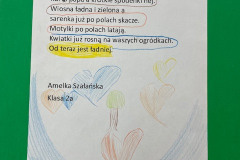 sarenka już po polach skacze.
Wiosna ładna i zielona a
Motylki po polach latają.
Kwiatki już rosną na waszych ogródkach.
Od teraz jest ładniej.
Amelka Szałańska
Klasa 2a